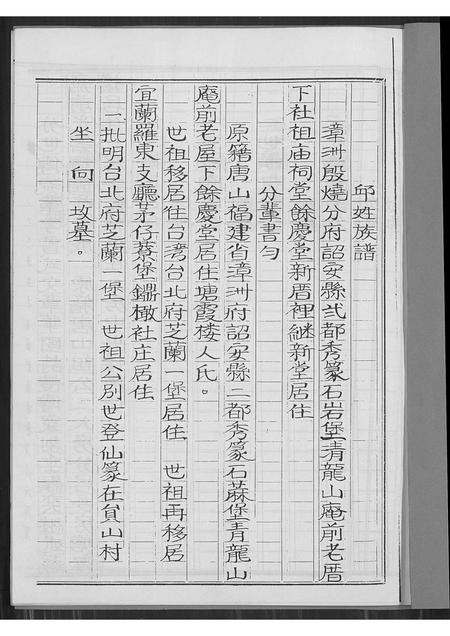 邱姓族譜
漳洲殷燒分府詔安縣弍都秀篆石岩堡青龍山庵前老厝
下社祖庙祠堂餘慶堂新厝裡継新堂居住
分輩書勻
原籍唐山福建省漳洲府詔安縣二都秀篆石蔴堡青龍山
庵前老屋下餘慶堂居住塘霞楼人氏。
世祖移居住台湾台北府芝蘭一堡居住 世祖再移居
宜蘭羅東支廳茅仔藔堡鼎橄社庄居住
一批明台北府芝蘭一堡 世祖公別世登仙篆在員山村
坐向坟墓。